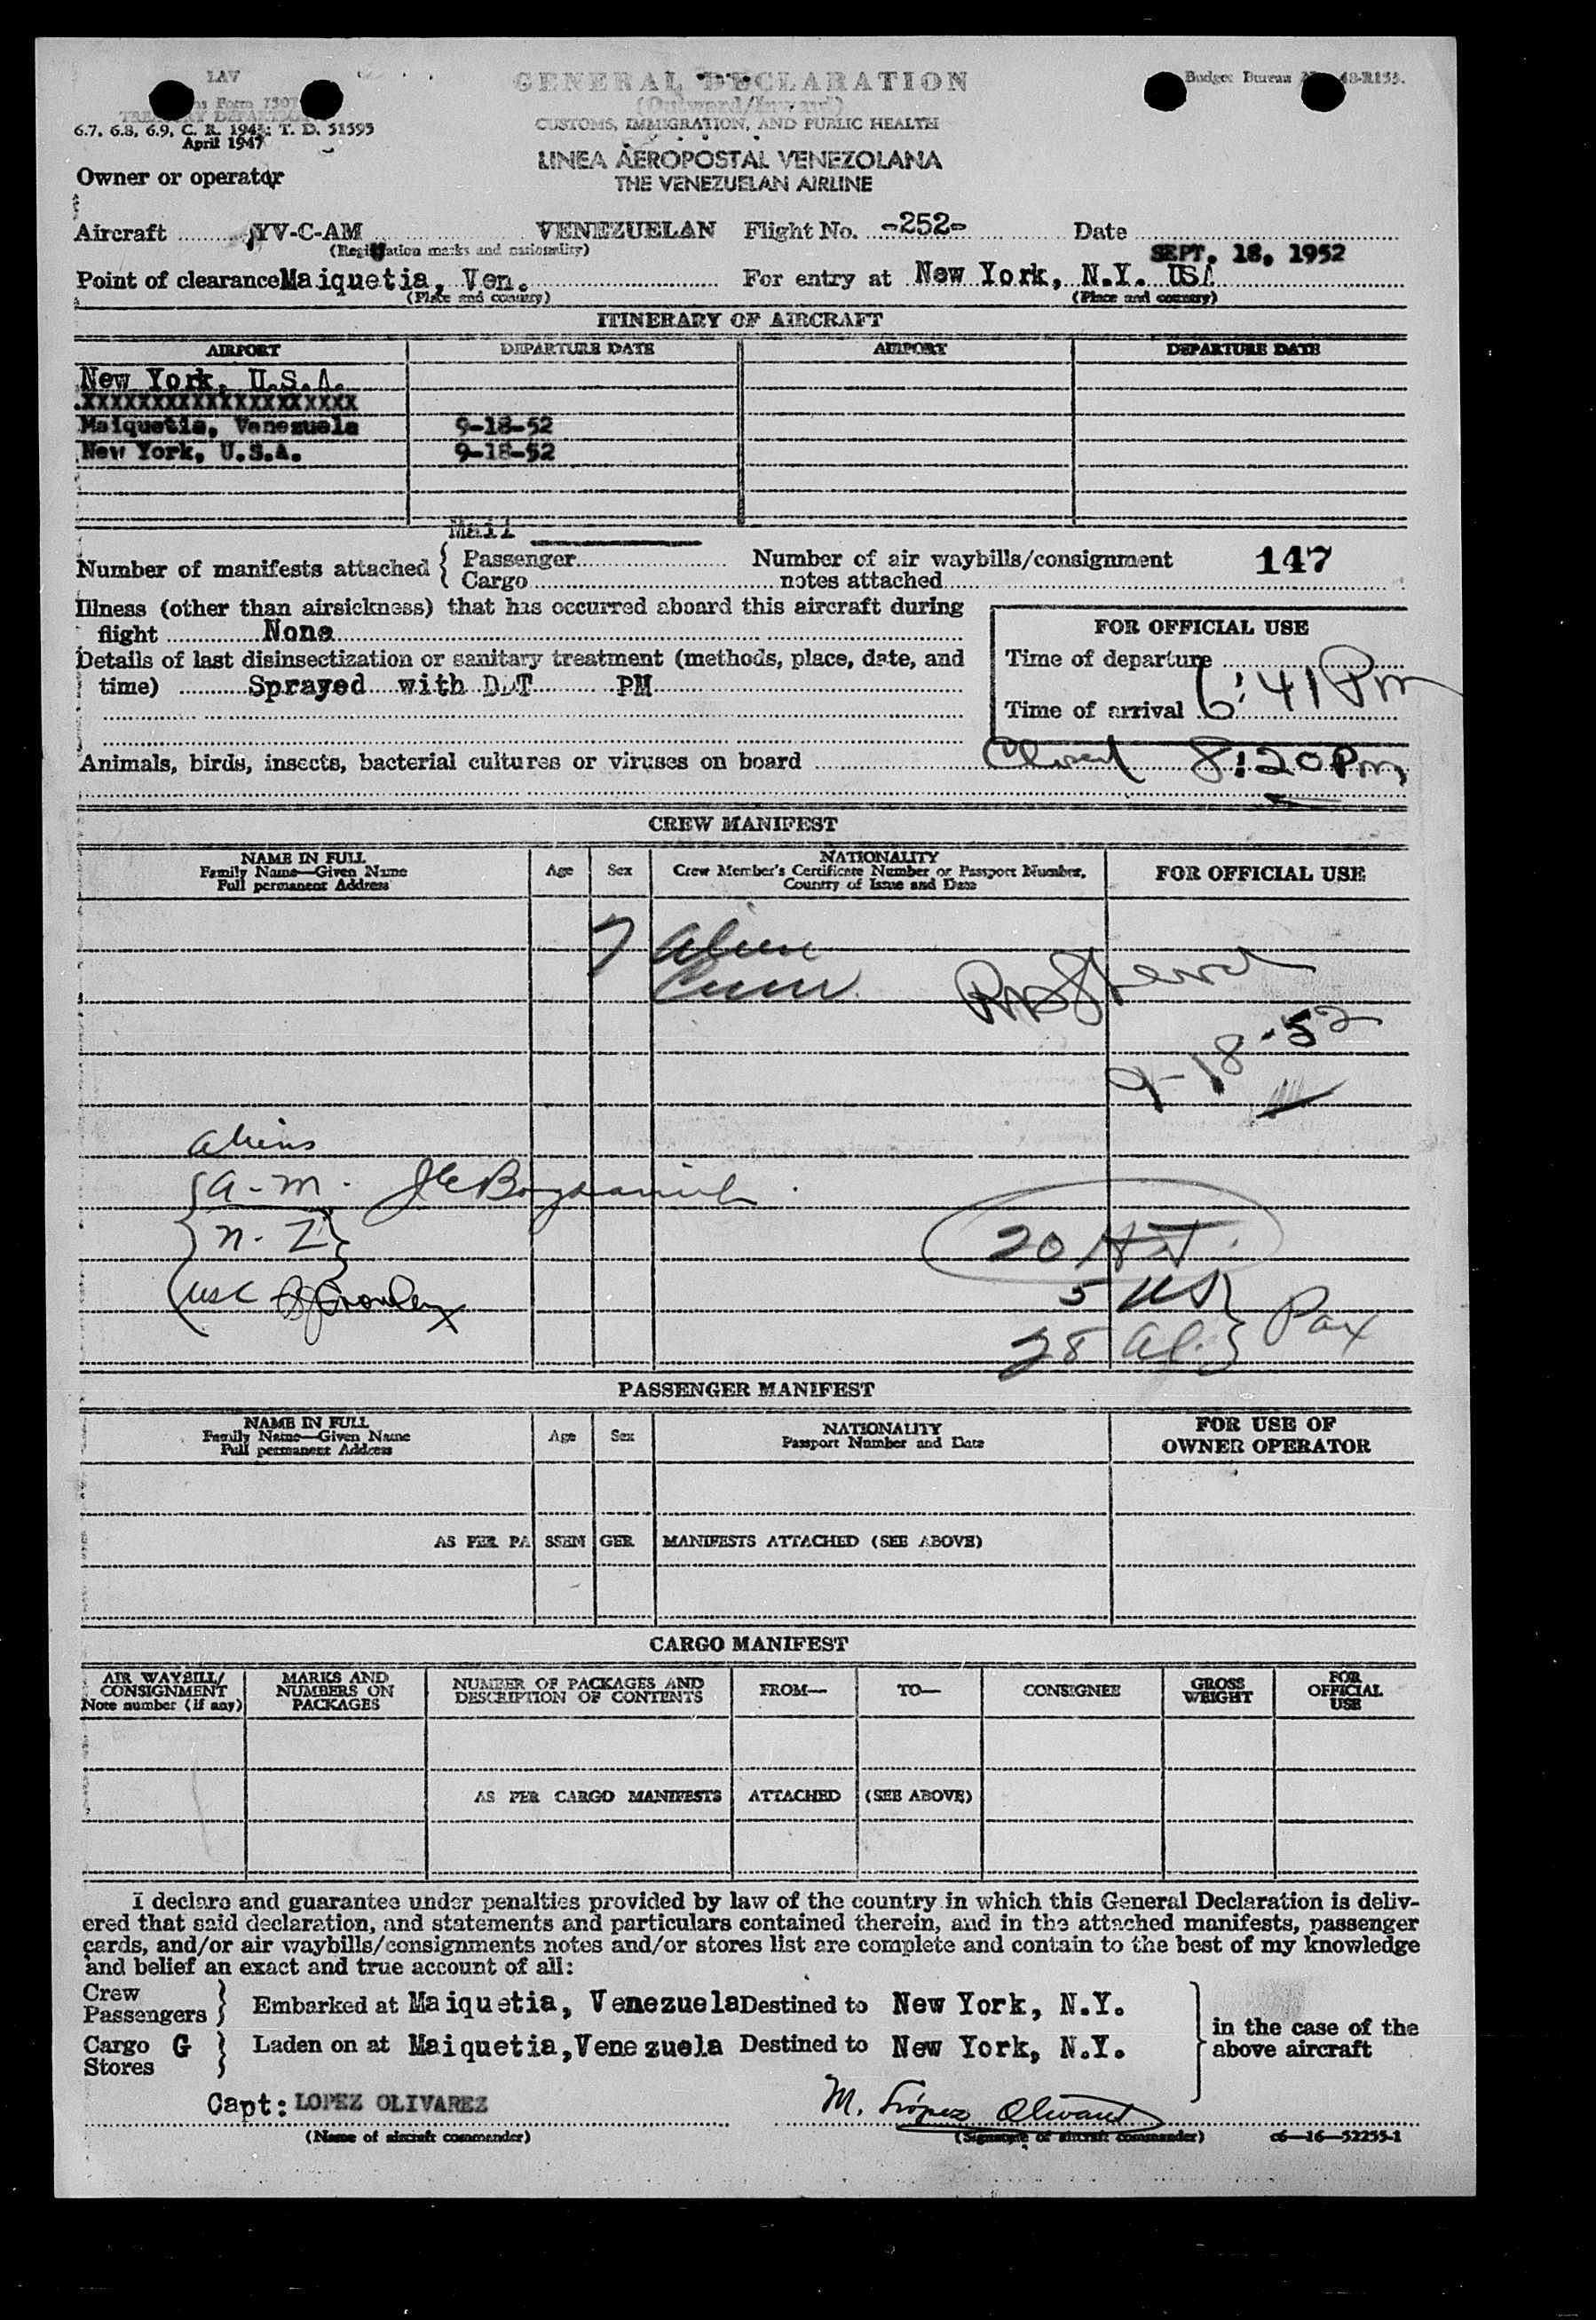 LAV
GENERAL DECLARATION
Budget Bureau 48-R155.
Customs Form 1507
(Outward/Inward)
TREASURY DEPARTMENT
CUSTOMS, IMMIGRATION, AND PUBLIC HEALTH
6.7, 6.8, 6.9, C. R. 1943; T. D. 51595
April 1947
LINEA AEROPOSTAL VENEZOLANA
THE VENEZUELAN AIRLINE
Owner or operator
Aircraft YV-C-AM VENEZUELAN Flight No. -252- Date
(Registration marks and nationality)
SEPT. 18, 1952
Point of clearance Maiquetia, Ven. For entry at New York, N.Y. USA
(Place and country) (Place and country)
ITINERARY OF AIRCRAFT
AIRPORT DEPARTURE DATE AIRPORT DEPARTURE DATE
New York, U.S.A.
XXXXXXXXXXXXXXXXXXXX
Maiquetia, Venezuela 9-18-52
New York, U.S.A. 9-18-52
Mail
Number of manifests attached { Passenger Number of air waybills/consignment 147
Cargo notes attached
Illness (other than airsickness) that has occurred aboard this aircraft during
flight None
FOR OFFICIAL USE
Details of last disinsectization or sanitary treatment (methods, place, date, and
Time of departure
time) Sprayed with DDT PM
6:41 Pm
Time of arrival
Animals, birds, insects, bacterial cultures or viruses on board
Closed 8:20 Pm
CREW MANIFEST
NAME IN FULL
Family Name—Given Name
Full permanent Address
Age Sex
NATIONALITY
Crew Member's Certificate Number or Passport Number,
Country of Issue and Date
FOR OFFICIAL USE
7 Alien
Crew
9-18-52
Aliens
A-M.
N-Z
USC
20
5 US
28 Al. } Pax
PASSENGER MANIFEST
NAME IN FULL
Family Name—Given Name
Full permanent Address
Age Sex
NATIONALITY
Passport Number and Date
FOR USE OF
OWNER OPERATOR
AS PER PASSENGER MANIFESTS ATTACHED (SEE ABOVE)
CARGO MANIFEST
AIR WAYBILL/
CONSIGNMENT
Note number (if any)
MARKS AND
NUMBERS ON
PACKAGES
NUMBER OF PACKAGES AND
DESCRIPTION OF CONTENTS
FROM— TO— CONSIGNEE
GROSS
WEIGHT
FOR
OFFICIAL
USE
AS PER CARGO MANIFESTS ATTACHED (SEE ABOVE)
I declare and guarantee under penalties provided by law of the country in which this General Declaration is deliv-
ered that said declaration, and statements and particulars contained therein, and in the attached manifests, passenger
cards, and/or air waybills/consignments notes and/or stores list are complete and contain to the best of my knowledge
and belief an exact and true account of all:
Crew
Passengers } Embarked at Maiquetia, Venezuela Destined to New York, N.Y.
Cargo G } Laden on at Maiquetia, Venezuela Destined to New York, N.Y.
Stores
in the case of the
above aircraft
Capt: LOPEZ OLIVAREZ M. López Olivares
(Name of aircraft commander) (Signature of aircraft commander) c6—16—52255-1